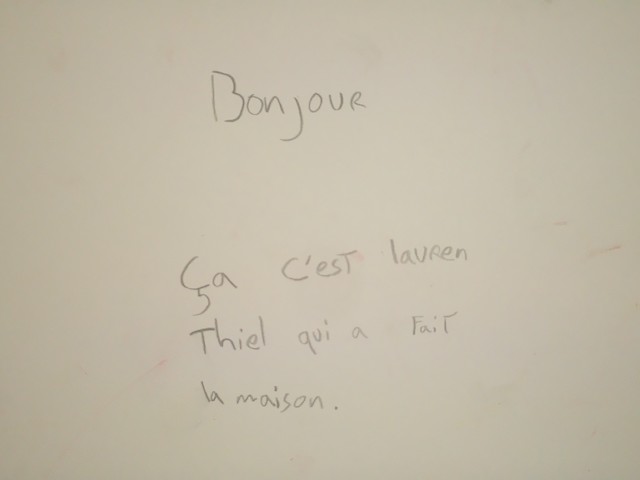 Bonjour
Ça c'est lauren
Thiel qui a fait
la maison.